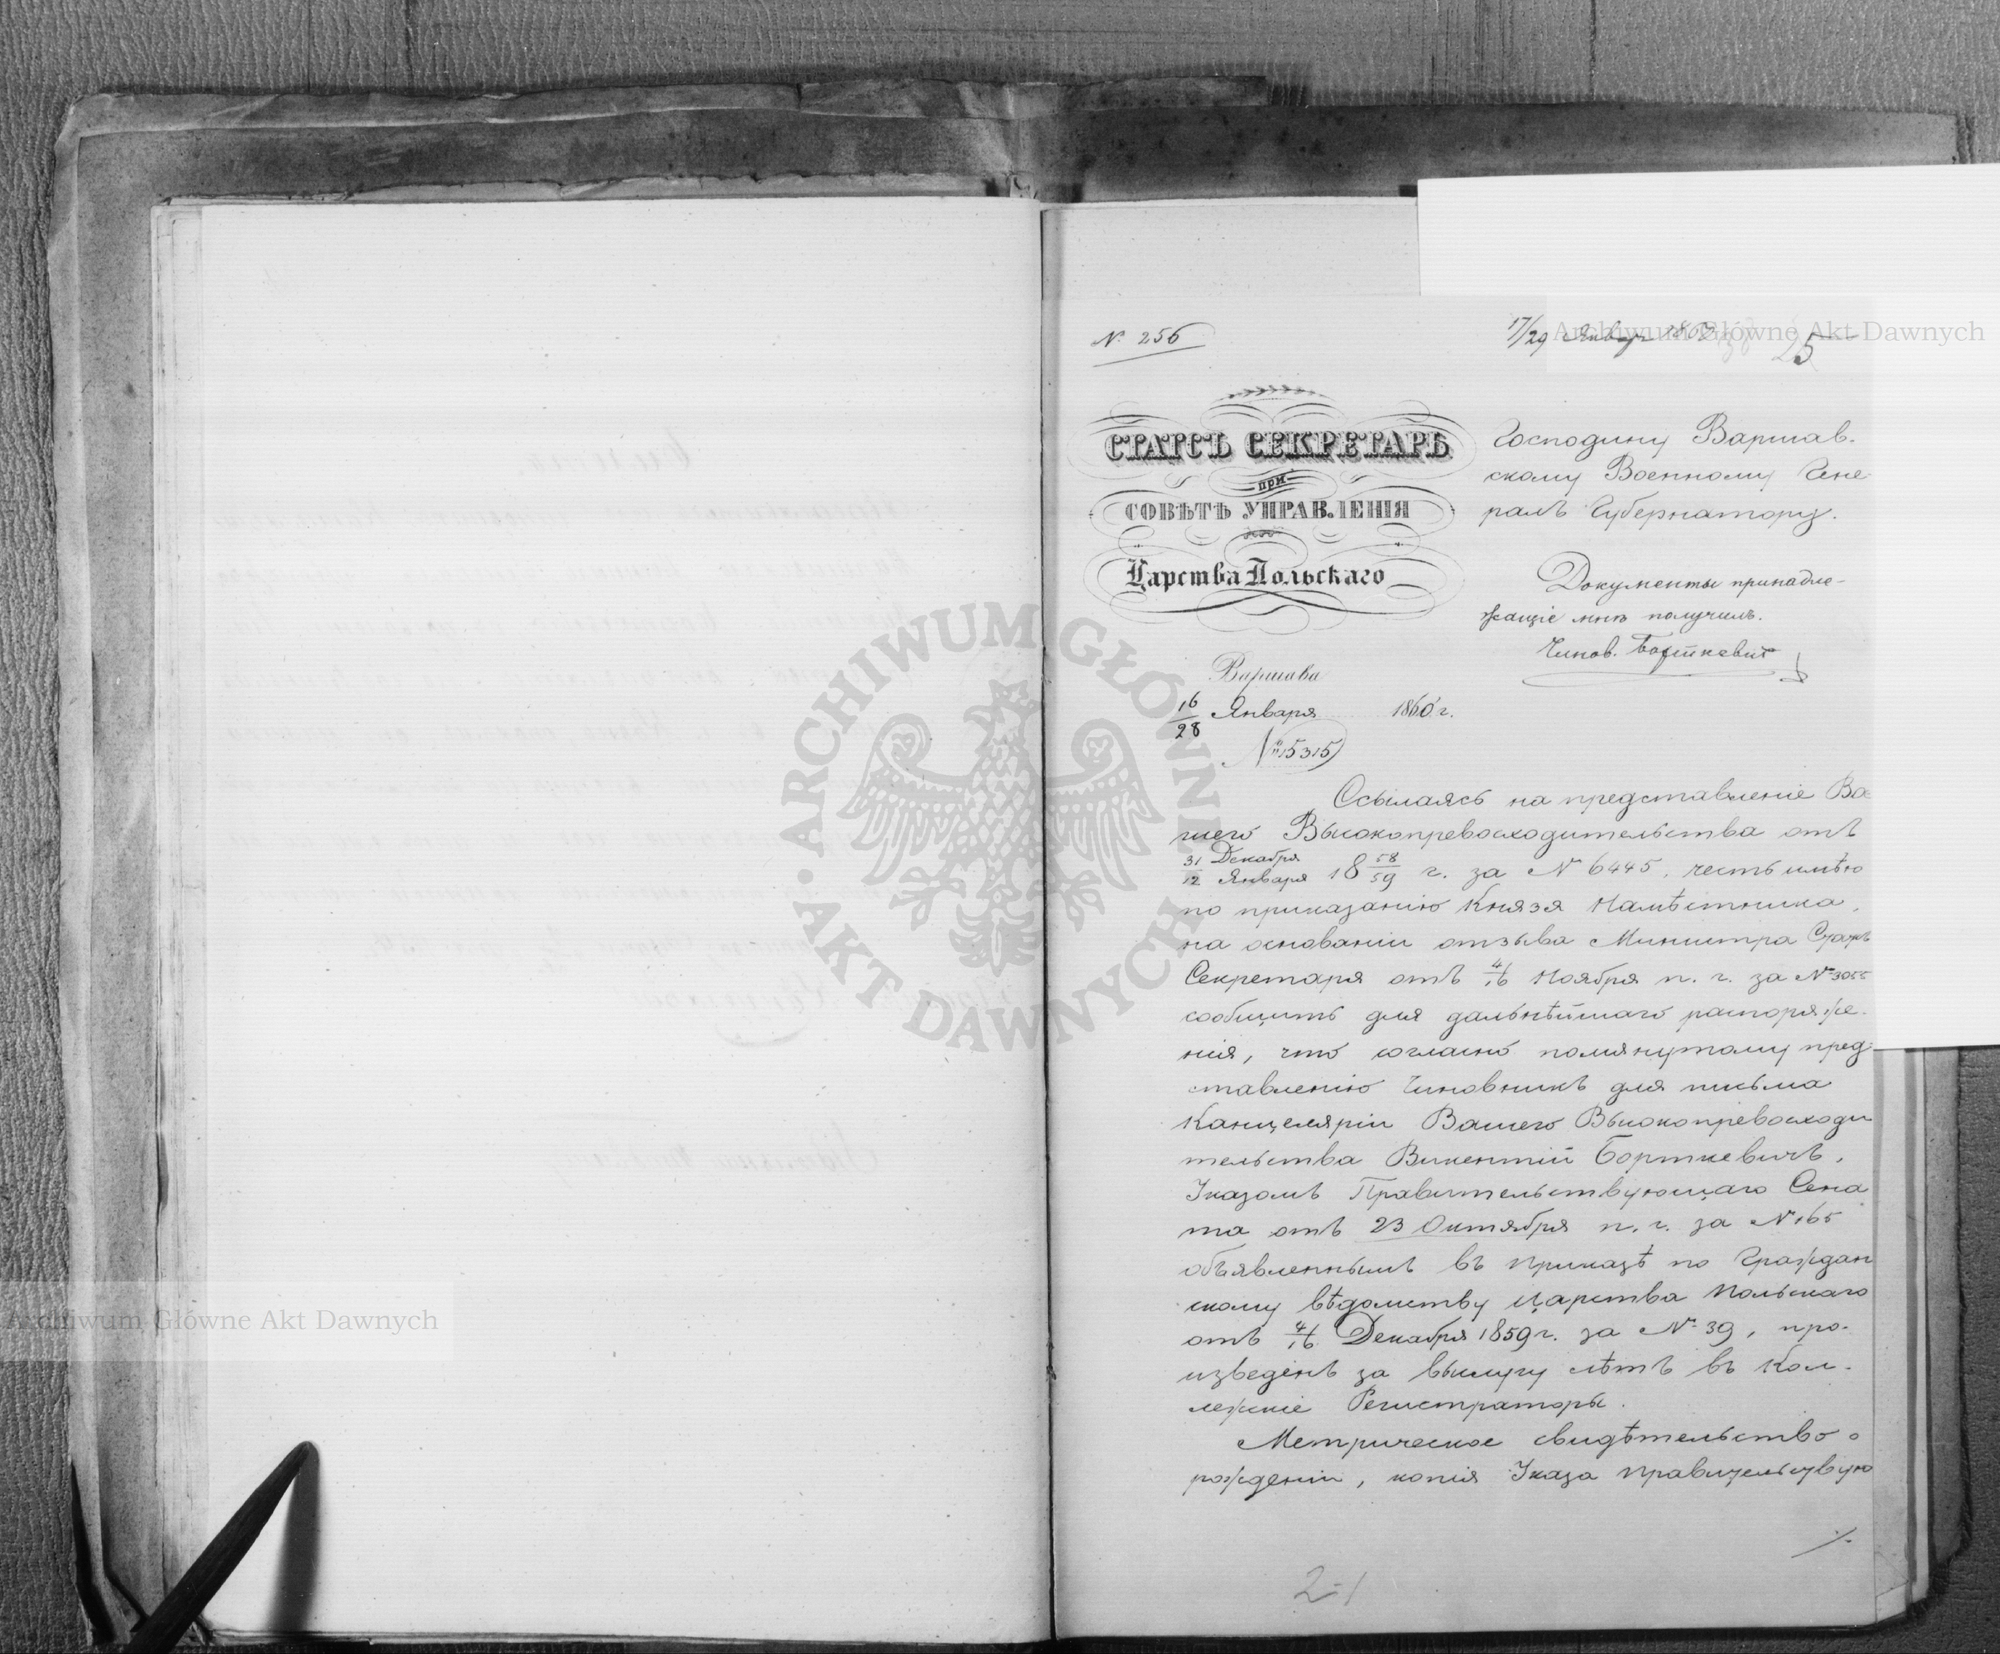 № 256
17/29 Январ 1860
25
СТАТСЪ СЕКРЕТАРЬ
при
СОВѢТѢ УПРАВЛЕНІЯ
Царства Польскаго
Варшава
16/28 Января 1860 г.
№ 15315
Господину Варшав-
скому Военному Гене-
ралъ Губернатору.
Документы принадле-
жащіе мнѣ получилъ.
Чинов. Борткевич
Ссылаясь на представленіе Ва-
шего Высокопревосходительства отъ
31 Декабря/12 Января 18 58/59 г. за № 6445, честь имѣю
по приказанію Князя Намѣстника,
на основаніи отзыва Министра Статсъ
Секретаря отъ 4/16 Ноября п. г. за № 3055
сообщить для дальнѣйшаго распоряже-
нія, что согласно помянутому пред-
ставленію Чиновникъ для письма
Канцеляріи Вашего Высокопревосходи
тельства Викентій Борткевичъ,
Указомъ Правительствующаго Сена
та отъ 23 Октября п. г. за № 165
объявленнымъ въ приказѣ по Граждан
скому вѣдомству Царства Польскаго
отъ 4/16 Декабря 1859 г. за № 39, про-
изведенъ за выслугу лѣтъ въ Кол-
лежскіе Регистраторы.
Метрическое свидѣтельство о
рожденіи, копія Указа Правительствую
./.
2-1
Archiwum Główne Akt Dawnych
Archiwum Główne Akt Dawnych
ARCHIWUM GŁÓWNE · AKT DAWNYCH ·